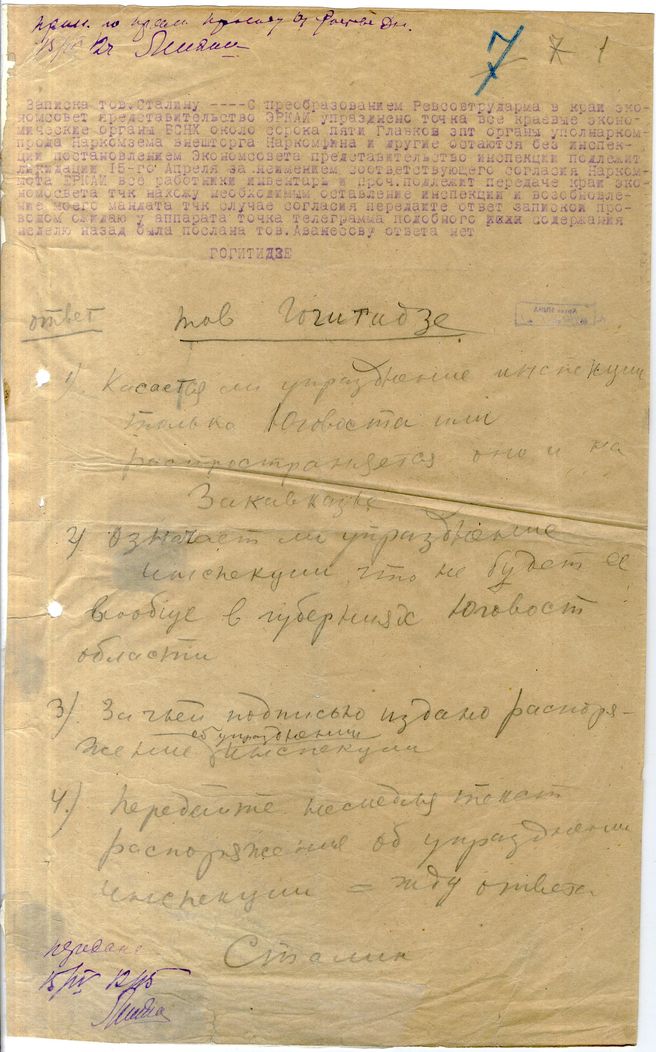 7 7 1
15/IV 12ч
Записка тов.Сталину ----С преобразованием Ревсовтрударма в край эко-
номсовет представительство ЭРКАИ упразднено точка все краевые эконо-
мические органы ВСНК около сорока пяти Главков зпт органы уполнарком-
прода Наркомзема внешторга Наркомфина и другие остаются без инспек-
ции постановлением Экономсовета представительство инспекции подлежит
ликвидации 15-го Апреля за неимением соответствующего согласия Нарком-
мюта ЭРКАИ все работники инвентарь и проч.подлежит передаче край эко-
номсовета тчк нахожу необходимым оставление инспекции и возобновле-
ние моего мандата тчк случае согласия передайте ответ запиской про-
водом ожидаю у аппарата точка телеграмма подобного содержания
неделю назад была послана тов.Аванесову ответа нет
ГОГИТИДЗЕ
ответ тов Гогитидзе
1) Касается ли упразднение инспекции
только Юговоста или
распространяется оно и на
Закавказье
2) означает ли упразднение
инспекции, что не будет ее
вообще в губерниях Юговост
области
3) За чьей подписью издано распоря-
жение об упразднении инспекции
4.) Передайте немедля текст
распоряжения об упразднении
инспекции = жду ответа.
Сталин
передано
15/IV 12/45